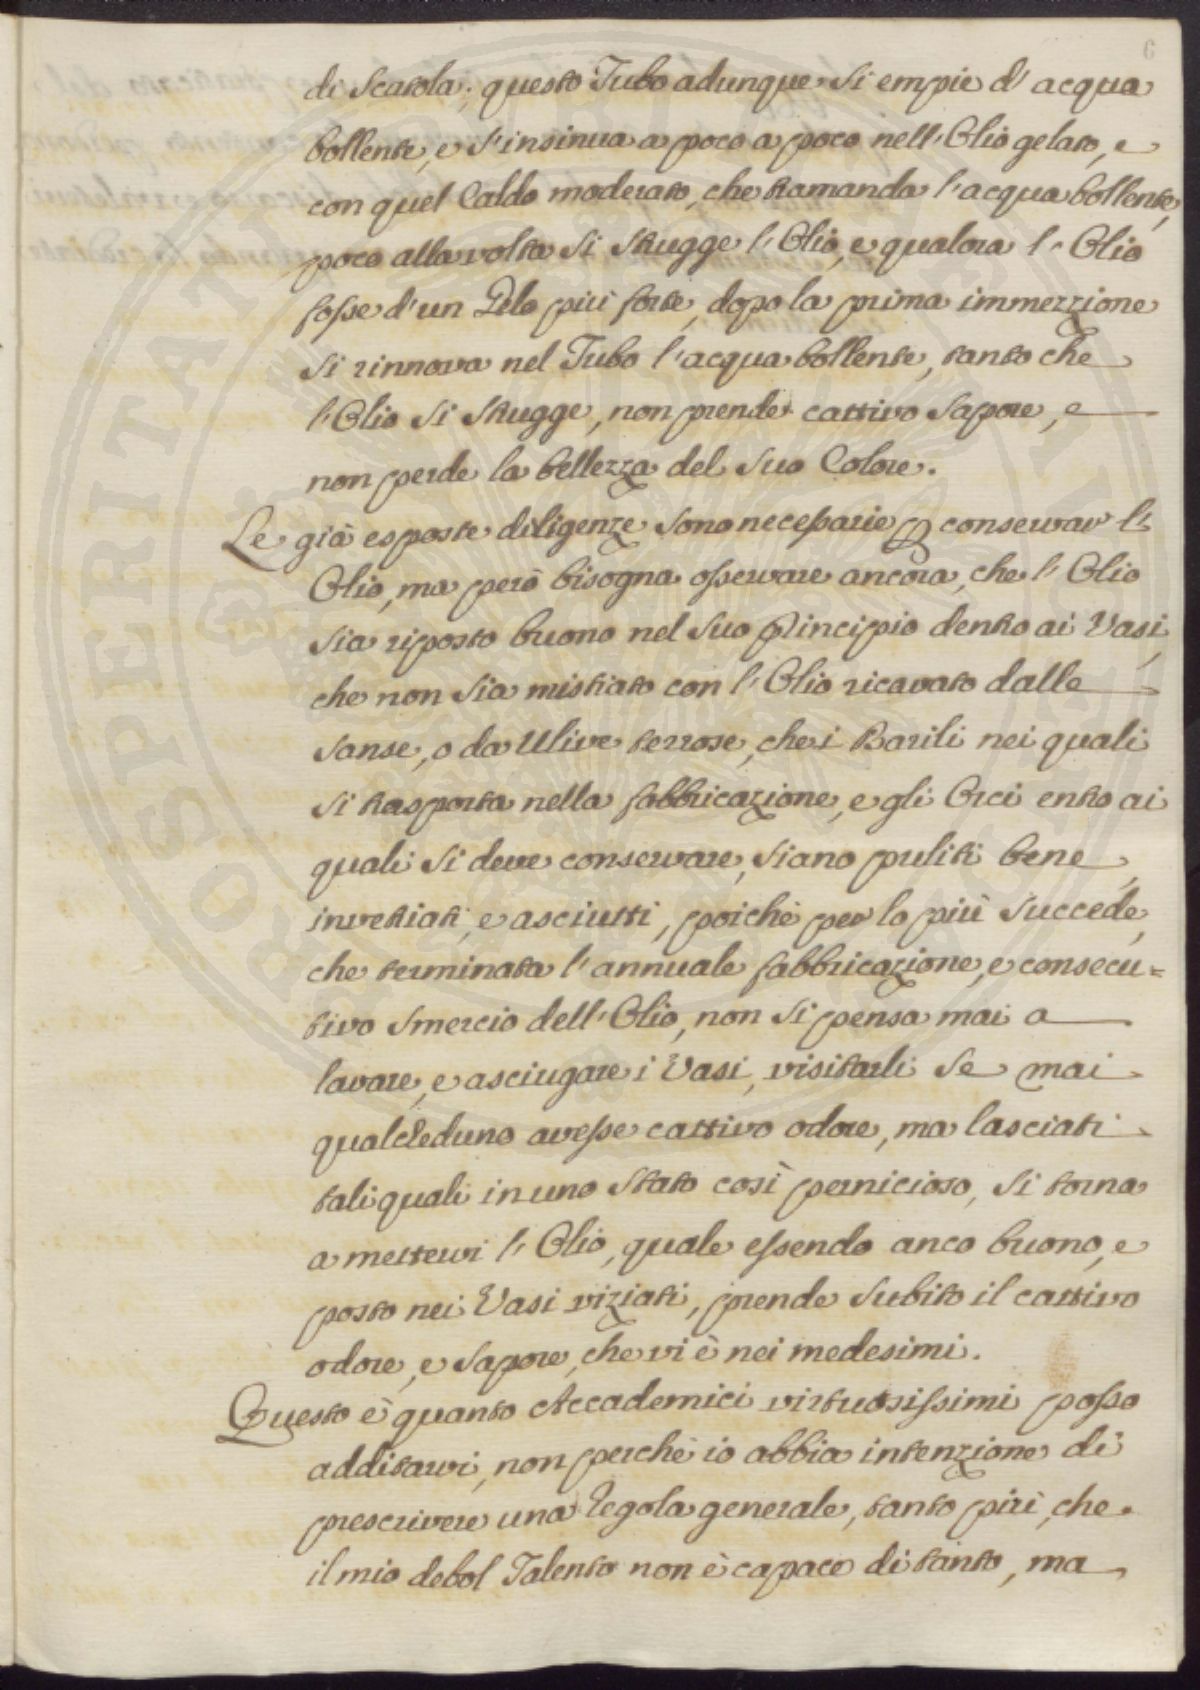 6
di Scatola; questo Tubo adunque si empie d'acqua
bollente, e s'insinua a poco a poco nell'Olio gelato, e
con quel Caldo moderato, che tramanda l'acqua bollente,
poco alla volta si strugge l'Olio, e qualora l'Olio
fosse d'un Gelo più forte, dopo la prima immerzione
si rinnova nel Tubo l'acqua bollente, tanto che
l'Olio si strugge, non prende cattivo sapore, e
non perde la bellezza del suo Colore.
Le già esposte diligenze sono necessarie p conservar l'
Olio, ma però bisogna osservare ancora, che l'Olio
sia riposto buono nel suo principio dentro ai Vasi,
che non sia mistiato con l'Olio ricavato dalle
sanse, o da Ulive terrose, che i Barili nei quali
si trasporta nella fabbricazione, e gli Orci entro ai
quali si deve conservare, siano puliti bene,
invetriati, e asciutti, poichè per lo più succede,
che terminata l'annuale fabbricazione, e consecu=
tivo smercio dell'Olio, non si pensa mai a
lavare, e asciugare i Vasi, visitarli se mai
qualcheduno avesse cattivo odore, ma lasciati
tali quali in uno stato così pernicioso, si torna
a mettervi l'Olio, quale essendo anco buono, e
posto nei Vasi viziati, prende subito il cattivo
odore, e sapore, che vi è nei medesimi.
Questo è quanto Accademici virtuosissimi posso
additarvi, non perchè io abbia intenzione di
prescrivere una Regola generale, tanto più, che
il mio debol Talento non è capace di tanto, ma
PROSPERITATI PUBLICAE AUGENDAE